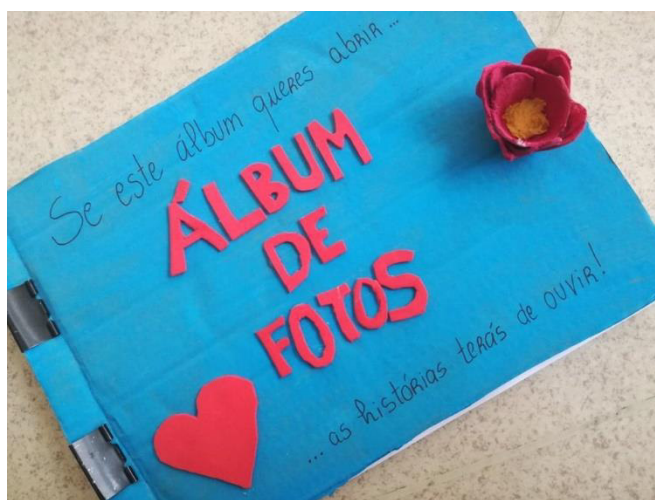 Se este álbum queres abrir...
ÁLBUM
DE
FOTOS
... as histórias terás de ouvir!